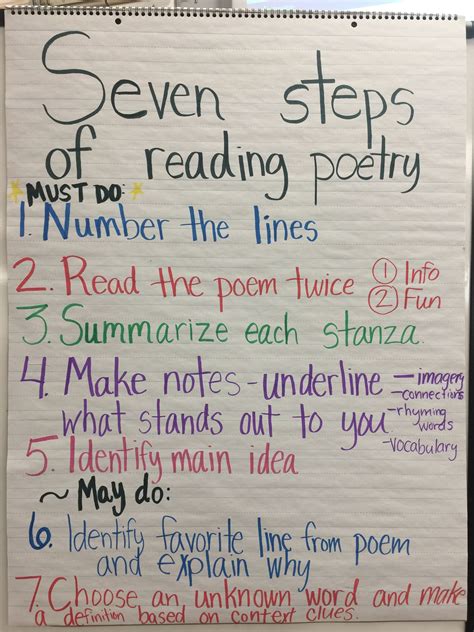 Seven steps
of reading poetry
MUST DO:
1. Number the lines
2. Read the poem twice ① Info
② Fun
3. Summarize each stanza.
4. Make notes - underline - imagery
- connections
what stands out to you - rhyming words
- vocabulary
5. Identify main idea
~ May do:
6. Identify favorite line from poem
and explain why
7. Choose an unknown word and make
a definition based on context clues.